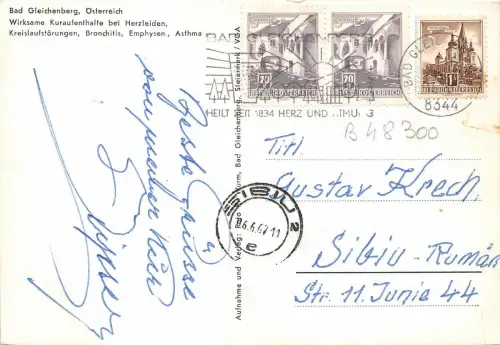 Bad Gleichenberg, Österreich
Wirksame Kuraufenthalte bei Herzleiden,
Kreislaufstörungen, Bronchitis, Emphysen, Asthma
Beste Grüsse
BAD GLEICHENBERG
HEILT SEIT 1834 HERZ UND
REPUBLIK ÖSTERREICH
20
REPUBLIK ÖSTERREICH
20
REPUBLIK ÖSTERREICH
1S
BAD GLEI
8344
B 48300
Titl.
Gustav Krech,
Sibiu-Rumän
Str. 11. Junie 44
SIBIU 2
6.6.67.11
e
Aufnahme und Verlag:
Bad Gleichenberg, Steiermark/VGA